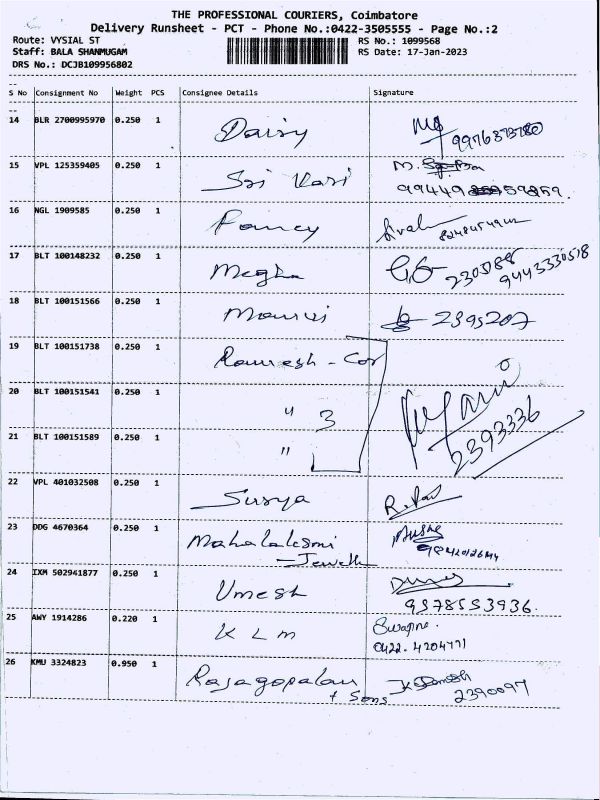 THE PROFESSIONAL COURIERS, Coimbatore
Delivery Runsheet - PCT - Phone No.:0422-3505555 - Page No.:2
Route: VYSIAL ST RS No.: 1099568
Staff: BALA SHANMUGAM RS Date: 17-Jan-2023
DRS No.: DCJB109956802
S No Consignment No Weight PCS Consignee Details Signature
14 BLR 2700995970 0.250 1 Daisy
15 VPL 125359405 0.250 1 Sri Kasi
16 NGL 1909585 0.250 1 Fancy
17 BLT 100148232 0.250 1 Megha 9443330518
18 BLT 100151566 0.250 1 2395207
19 BLT 100151738 0.250 1
20 BLT 100151541 0.250 1 " 3
21 BLT 100151589 0.250 1 " 2393336
22 VPL 401032508 0.250 1 Surya
23 DDG 4670364 0.250 1 Mahalaksmi
24 IXM 502941877 0.250 1 Umesh
9578553936.
25 AWY 1914286 0.220 1 K L M Swapna.
0422. 4204771
26 KMU 3324823 0.950 1 Rajagopalan
+ Sons 2390097